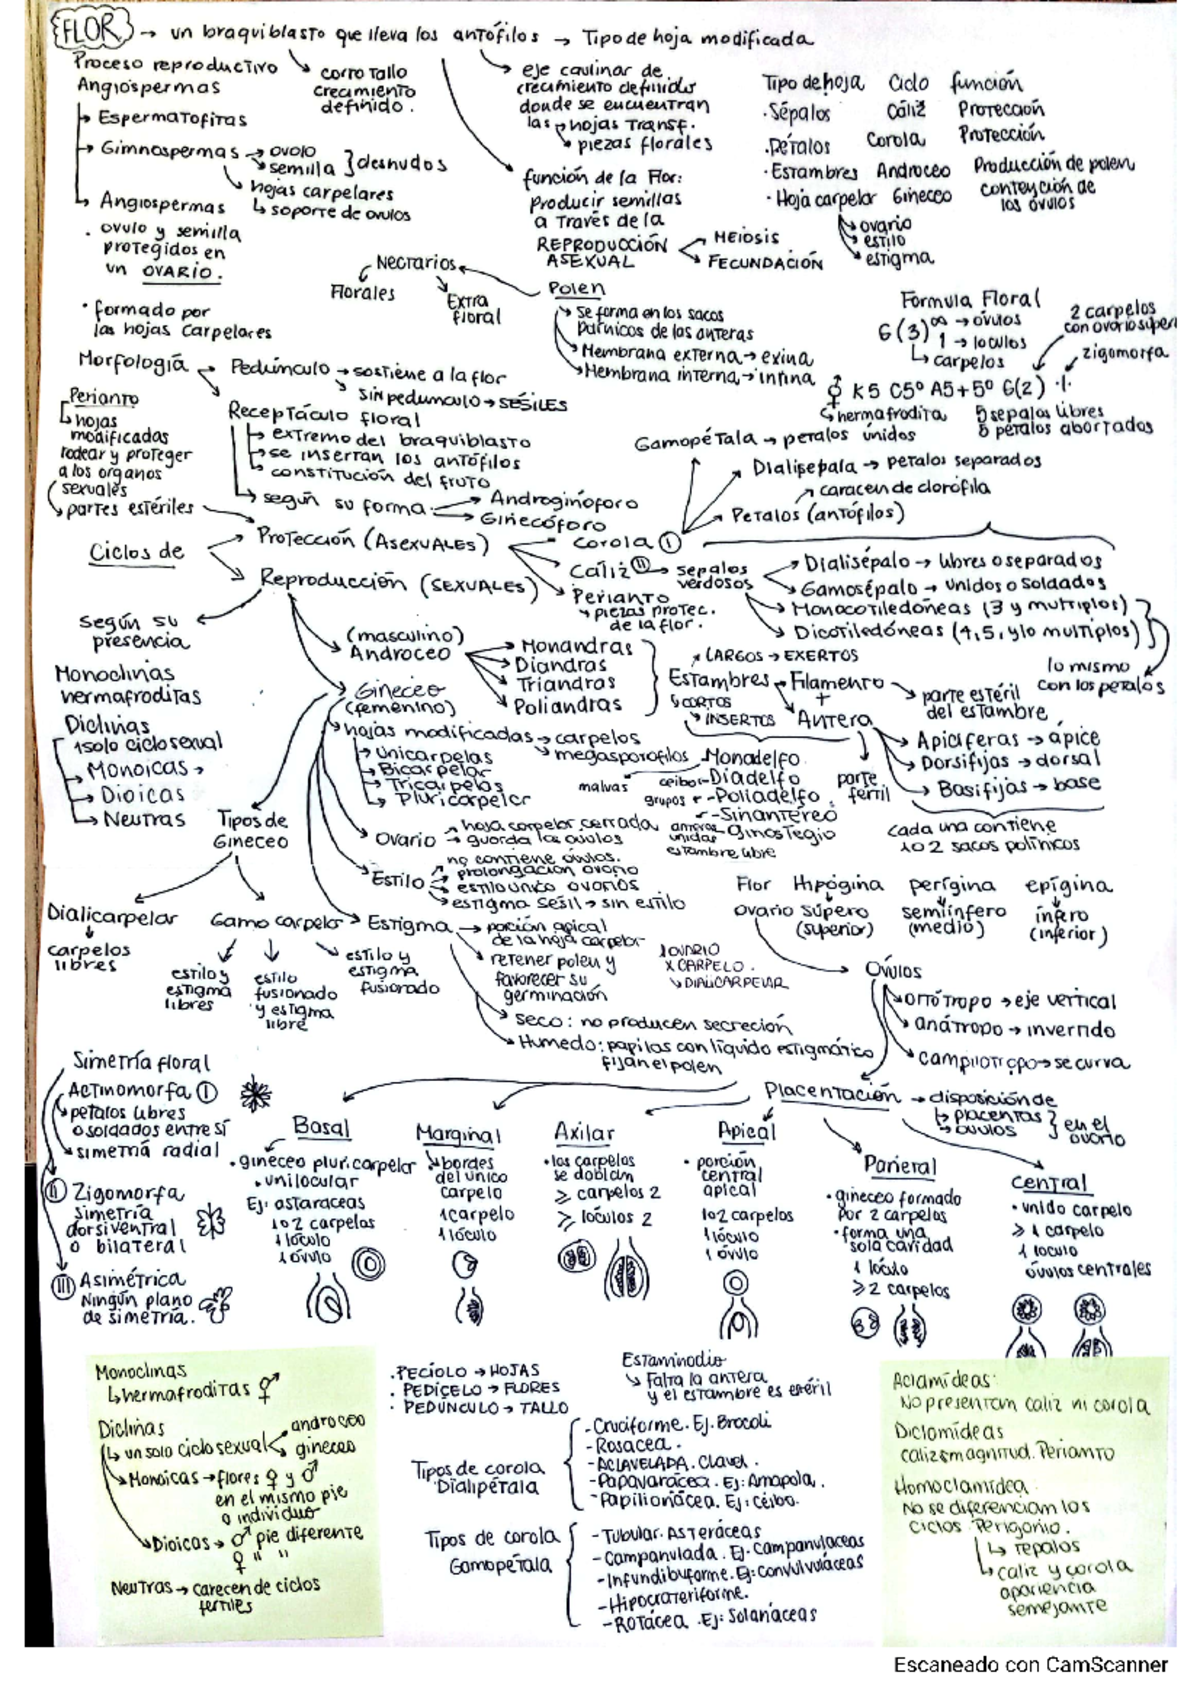 FLOR → un braquiblasto que lleva los antófilos → Tipo de hoja modificada
Proceso reproductivo
Angiospermas
→ Espermatofitas
→ Gimnospermas → ovolo
→ semilla } desnudos
hojas carpelares
↳ soporte de ovulos
→ Angiospermas
. ovulo y semilla
protegidos en
un OVARIO.
• formado por
las hojas carpelares
corto tallo
crecimiento
definido.
eje caulinar de
crecimiento definido
donde se encuentran
las → hojas Transf.
→ piezas florales
función de la Flor:
producir semillas
a través de la
REPRODUCCIÓN
ASEXUAL
MEIOSIS
FECUNDACIÓN
Tipo de hoja Ciclo función
• Sépalos Cáliz Protección
• Pétalos Corola Protección
• Estambres Androceo Producción de polen
• Hoja carpelar Gineceo contención de
los óvulos
→ ovario
→ estilo
→ estigma
Nectarios
Florales
Extra
floral
Polen
→ se forma en los sacos
de las anteras
→ Membrana externa → exina
→ Membrana interna → intina
Formula Floral
G (3) ∞ → óvulos
1 → loculos
↳ carpelos
2 carpelos
con ovario super
zigomorfa
⚥ K5 C5° A5+5° G(2) ·|·
↳ hermafrodita
5 sepalos libres
5 pétalos abortados
Morfología → Pedúnculo → sostiene a la flor
↘ sin pedunculo → SÉSILES
Receptáculo floral
→ extremo del braquiblasto
→ se insertan los antófilos
→ constitución del fruto
→ según su forma → Androginóforo
→ Ginecóforo
Perianto
↳ hojas
modificadas
rodear y proteger
a los organos
sexuales
↳ partes estériles
Gamopétala → petalos únidos
Dialisepala → petalos separados
→ caracen de clorófila
Petalos (antófilos)
Ciclos de
Protección (ASEXUALES)
Reproducción (SEXUALES)
Corola Ⓘ
Cáliz Ⓘ → sepalos
verdosos
Perianto
↳ piezas protec.
de la flor.
→ Dialisépalo → libres o separados
→ Gamosépalo → unidos o soldados
→ Monocotiledóneas (3 y multiplos)
→ Dicotiledóneas (4,5, y/o multiplos)
lo mismo
con los petalos
Según su
presencia
Monoclinias
hermafroditas
Diclinias
1 solo ciclo sexual
→ Monoicas →
→ Dioicas
→ Neutras
(masculino)
Androceo
→ Monandras
→ Diandras
→ Triandras
→ Poliandras
Gineceo
(femenino)
→ hojas modificadas → carpelos
↘ megasporofilos
→ Unicarpelas
→ Bicarpelar
→ Tricarpelas
→ Pluricarpelar
LARGOS → EXERTOS
Estambres → Filamento → parte estéril
del estambre
+
Antera
CORTOS
↳ INSERTOS
→ Apicíferas → ápice
→ Dorsifijas → dorsal
→ Basifijas → base
parte
fértil
cada una contiene
1 o 2 sacos polínicos
malvas - Monadelfo
ceibo - Diadelfo
grupos - Poliadelfo
- Sinantéreo
anteras
unidas - Ginostegio
estambre libre
Ovario → hoja carpelar cerrada
→ guarda los óvulos
Estilo → no contiene óvulos.
→ prolongación ovario
→ estilo unico ovarios
→ estigma sésil → sin estilo
Estigma → porción apical
de la hoja carpelar
→ retener polen y
favorecer su
germinación
→ seco: no producen secreción
→ Humedo: papilas con líquido estigmático
fijan el polen
1 OVARIO
X CARPELO.
↳ DIALICARPELAR
Tipos de
Gineceo
Dialicarpelar
carpelos
libres
Gamo carpelar
estilo y
estigma
libres
estilo
fusionado
y estigma
libre
estilo y
estigma
fusionado
Flor Hipógina perígina epígina
ovario súpero semiínfero ínfero
(superior) (medio) (inferior)
Óvulos
→ ortótropo → eje vertical
→ anátropo → invertido
→ campilotropo → se curva
Placentación → disposición de
→ placentas
→ ovulos } en el
ovario
Simetría floral
Actinomorfa Ⓘ
petalos libres
o soldados entre sí
simetría radial
Ⓘ Zigomorfa
simetría
dorsiventral
o bilateral
Ⓘ Asimétrica
Ningún plano
de simetría.
Basal
• gineceo pluricarpelar
• unilocular
Ej: astaraceas
1 o 2 carpelos
1 lóculo
1 óvulo
Marginal
bordes
del unico
carpelo
1 carpelo
1 lóculo
Axilar
• los carpelos
se doblan
≥ carpelos 2
≥ lóculos 2
Apical
• porción
central
apical
1 o 2 carpelos
1 lóculo
1 óvulo
Parietal
• gineceo formado
por 2 carpelos
• forma una
sola cavidad
1 lóculo
≥ 2 carpelos
central
• unido carpelo
≥ 1 carpelo
1 loculo
óvulos centrales
Monoclinas
↳ hermafroditas ⚥
Diclinas
↳ un solo ciclo sexual < androceo
gineceo
→ Monoicas → flores ♀ y ♂
en el mismo pie
o individuo
→ Dioicas → ♂ pie diferente
♀ " "
Neutras → carecen de ciclos
fertiles
. PECÍOLO → HOJAS
. PEDICELO → FLORES
. PEDÚNCULO → TALLO
Estaminodio
↳ Falta la antera
y el estambre es estéril
Tipos de corola
Dialipétala
- Cruciforme. Ej. Brocoli
- Rosacea.
- ACLAVELADA. Clavel.
- Papavarácea. Ej: Amapola.
- Papilionácea. Ej: Céibo.
Tipos de corola
Gamopétala
- Tubular. Asteráceas
- Campanulada. Ej. Campanulaceas
- Infundibuforme. Ej: Convulvuláceas
- Hipocrateriforme.
- Rotácea. Ej: Solanáceas
Aclamídeas:
No presentan caliz ni corola
Diclomídeas
caliz magnitud. Perianto
Homoclamídea
No se diferencian los
ciclos. Perigonio.
↳ tepalos
↳ caliz y corola
apariencia
semejante
Escaneado con CamScanner